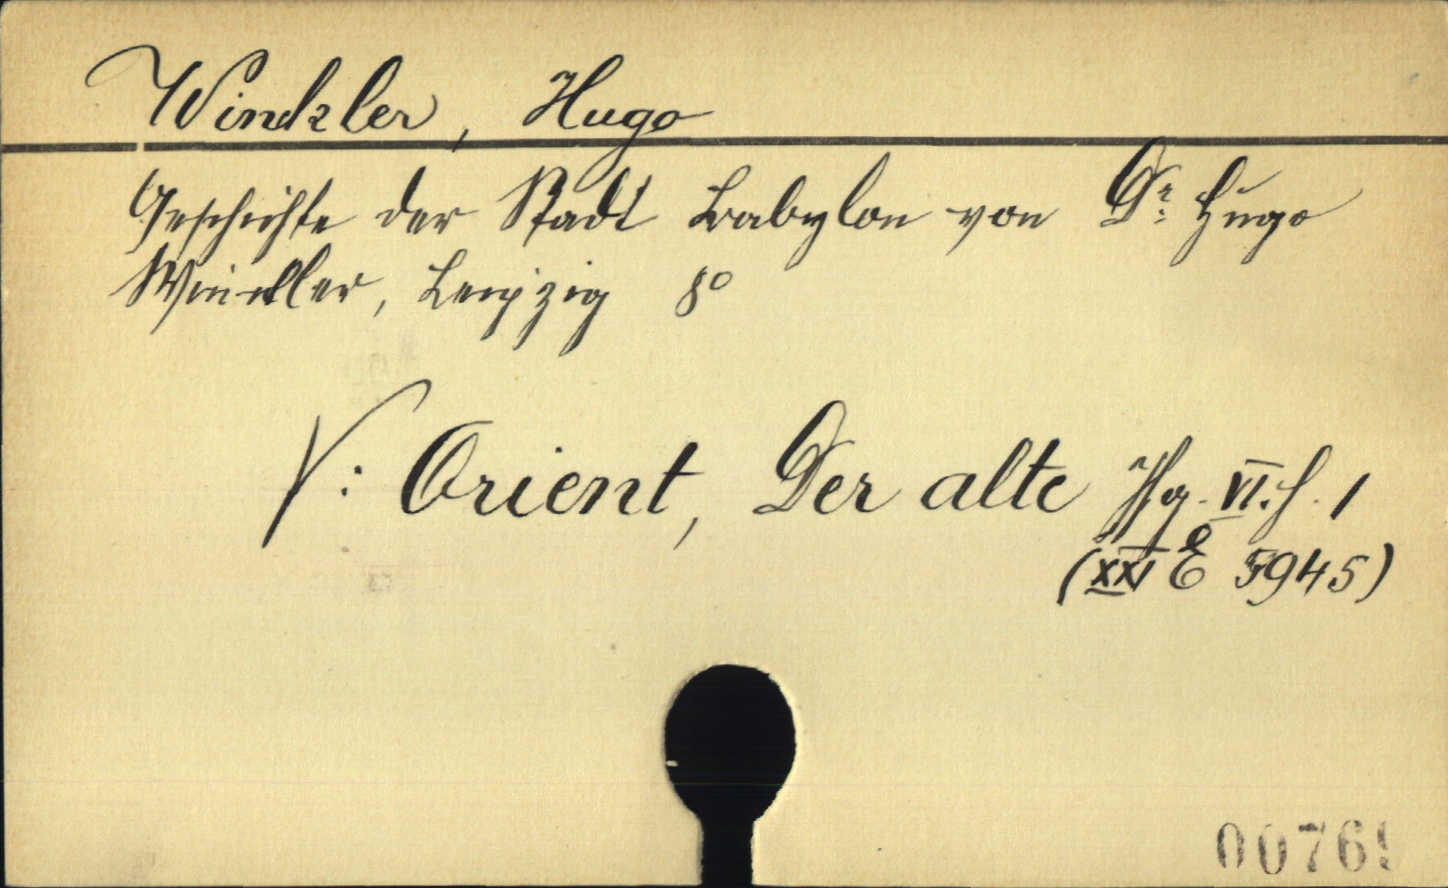 Winckler, Hugo
Geschichte der Stadt Babylon von Dr. Hugo
Winckler, Leipzig 8°
V: Orient, Der alte Jhg. VI. H. 1
(XXI E 5945)
0076